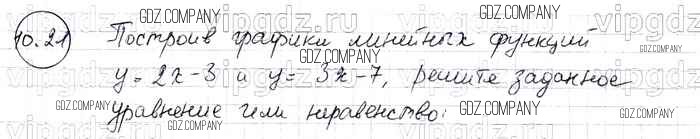 10.21 Построив графики линейных функций
y = 2x - 3 и y = 3x - 7, решите заданное
уравнение или неравенство:
GDZ.COMPANY
GDZ.COMPANY
GDZ.COMPANY
GDZ.COMPANY
GDZ.COMPANY
GDZ.COMPANY
vipgdz
vipgdz
vipgdz